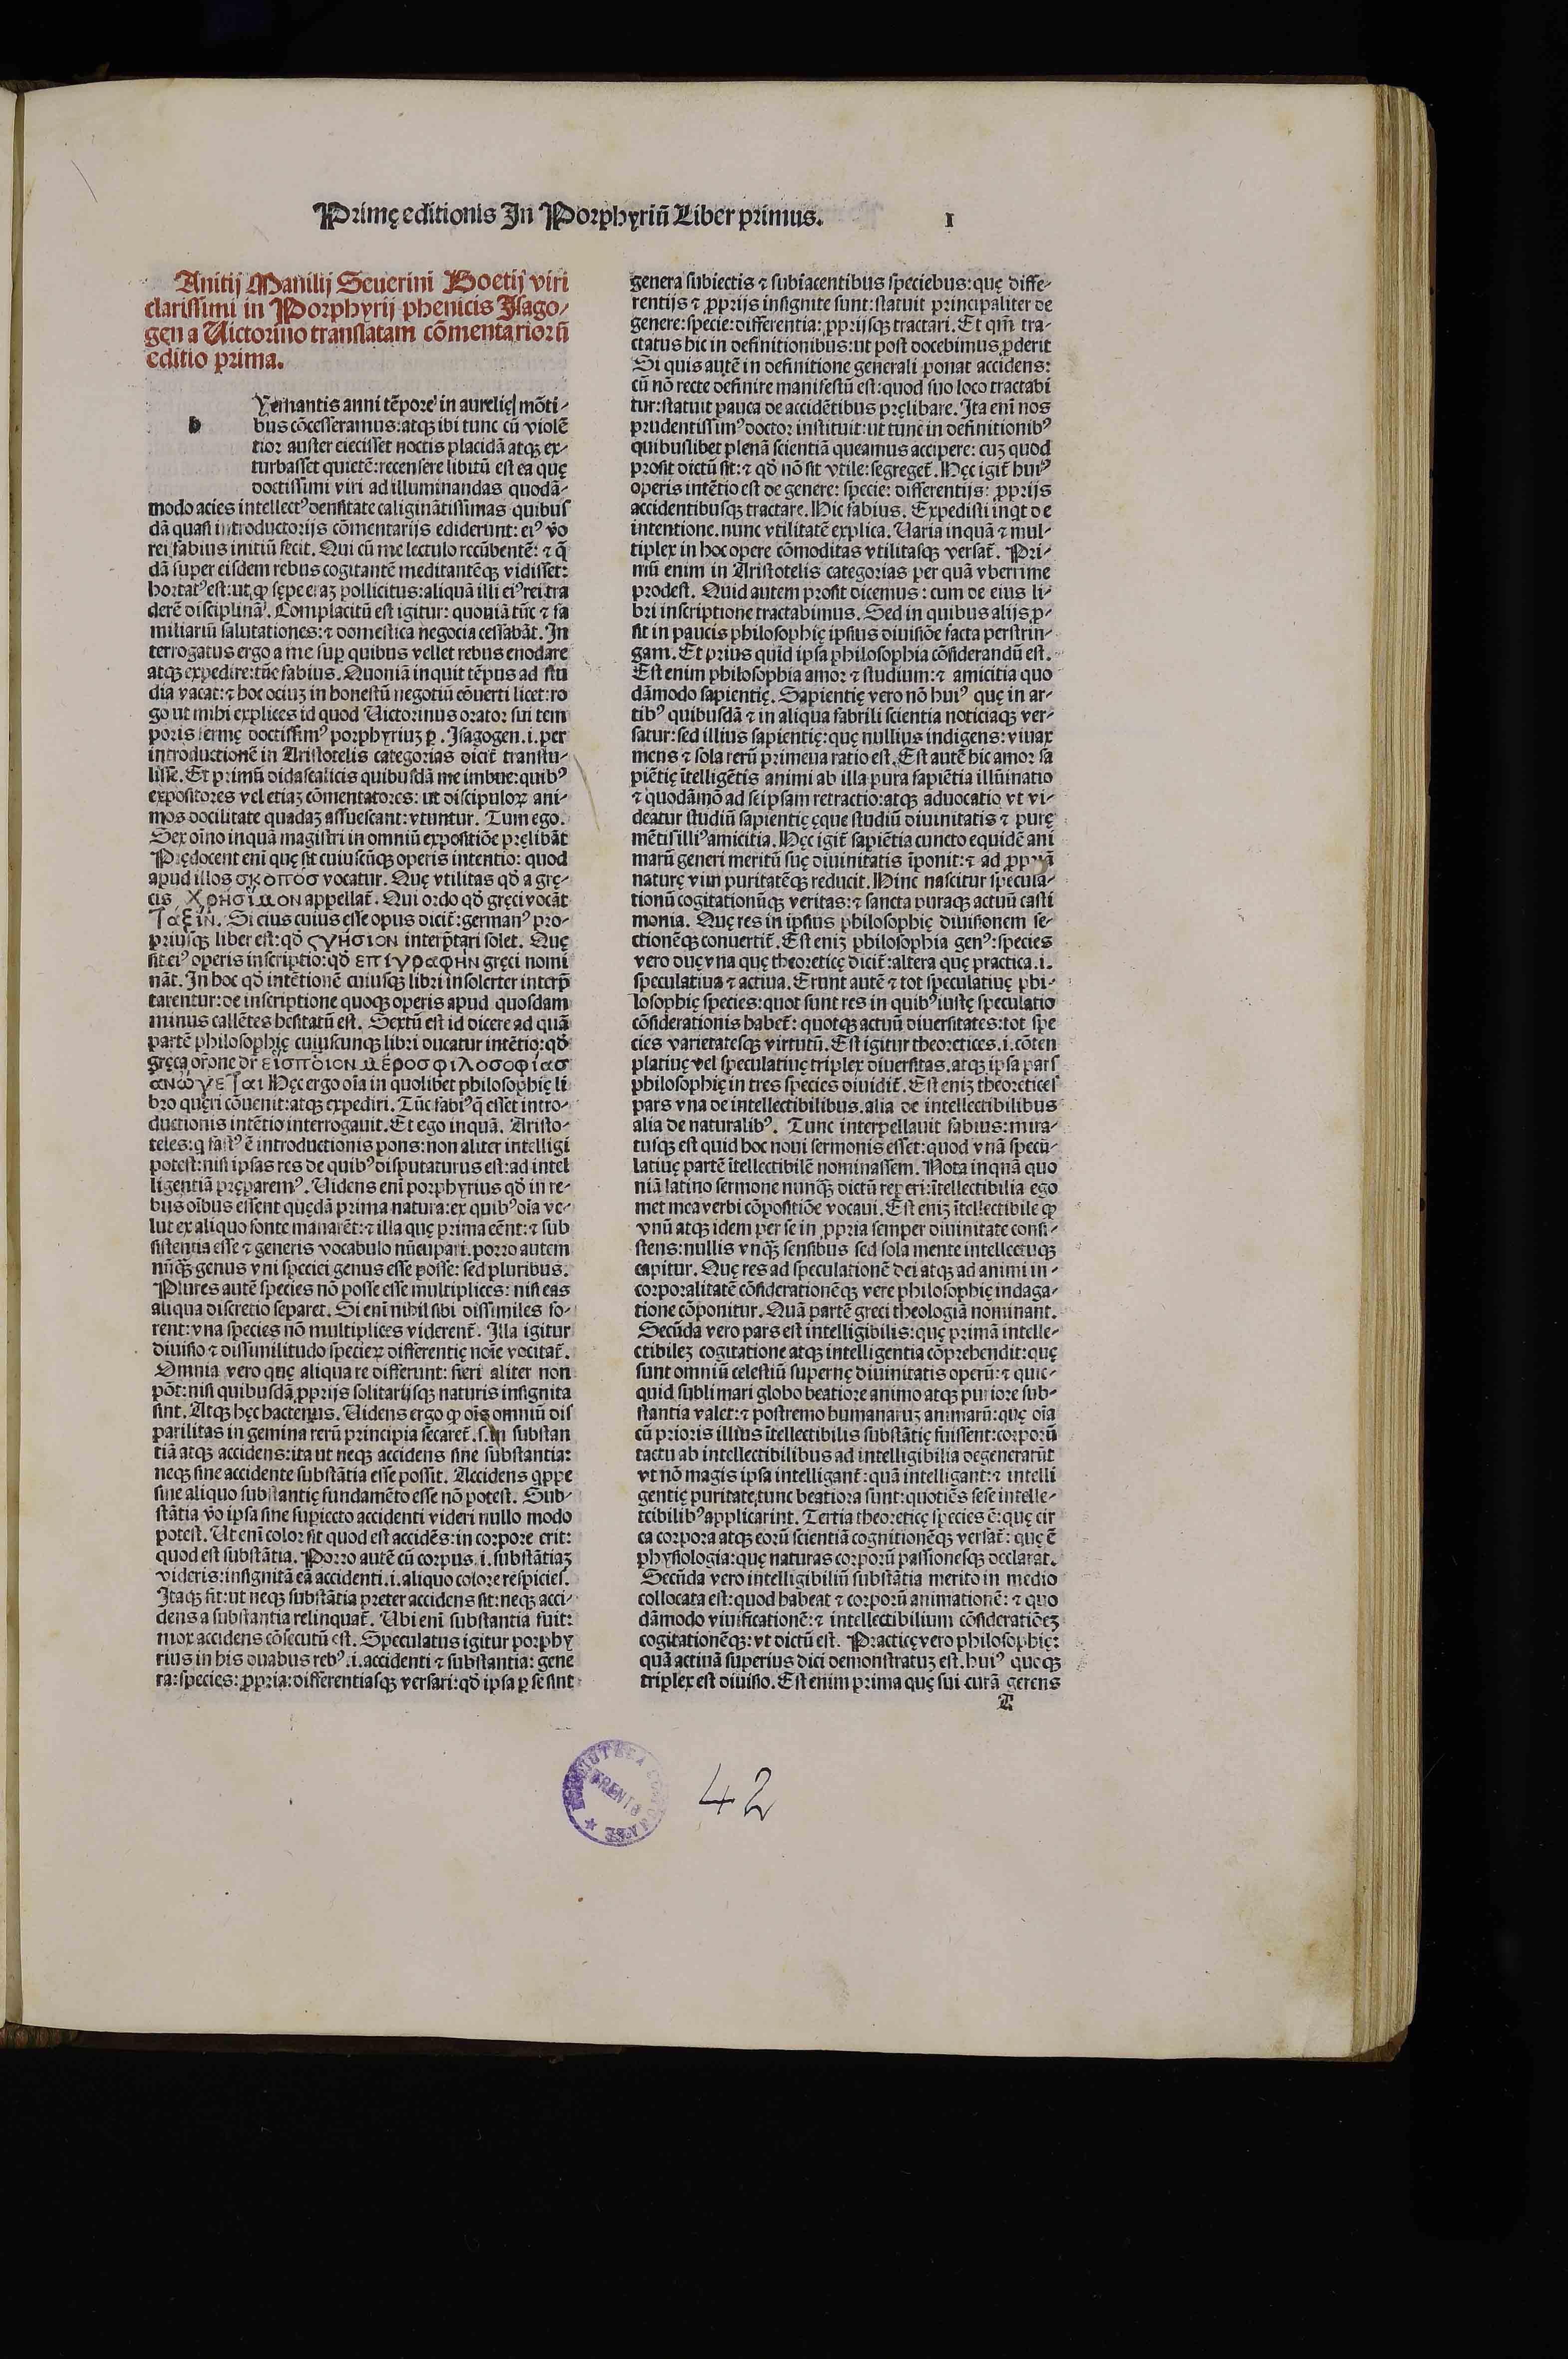 Primę editionis In Porphyriũ Liber primus. 1
Anitij Manilij Seuerini Boetij viri
clarissimi in Porphyrij phenicis Isago-
gen a Uictorino translatam cõmentariorũ
editio prima.
h
Yemantis anni tẽpore in aurelię mõti-
bus cõcesseramus: atqꝫ ibi tunc cũ violẽ
tior auster eiecisset noctis placidã atqꝫ ex-
turbasset quietẽ: recensere libitũ est ea quę
doctissimi viri ad illuminandas quodã-
modo acies intellectꝰ densitate caliginãtissimas quibus
dã quasi introductorijs cõmentarijs ediderunt: eiꝰ vo
rei fabius initiũ fecit. Qui cũ me lectulo recũbentẽ: ⁊ q̃
dã super eisdem rebus cogitantẽ meditantẽqꝫ vidisset:
hortatꝰ est: ut ꝙ sępe eraꝫ pollicitus: aliquã illi eiꝰ rei tra
derẽ disciplinã. Complacitũ est igitur: quoniã tũc ⁊ fa
miliariũ salutationes: ⁊ domestica negocia cessabãt. In
terrogatus ergo a me suꝑ quibus vellet rebus enodare
atqꝫ expedire: tũc fabius. Quoniã inquit tẽpus ad stu
dia vacat: ⁊ hoc ociuꝫ in honestũ negotiũ cõuerti licet: ro
go ut mihi explices id quod Uictorinus orator sui tem
poris ferme doctissimꝰ porphyriuꝫ ꝑ. Isagogen .i. per
introductionẽ in Aristotelis categorias dicit̃ transtu-
lisse. Et primũ didascalicis quibusdã me imbue: quibꝰ
expositores vel etiaꝫ cõmentatores: ut discipuloꝝ ani-
mos docilitate quadaꝫ assuescant: vtuntur. Tum ego.
Sex oĩno inquã magistri in omniũ expositiõe pręlibãt
Prędocent eni quę sit cuiuscũqꝫ operis intentio: quod
apud illos σκοποσ vocatur. Quę vtilitas qđ a grę-
cis χρήσιμον appellat̃. Qui ordo qđ gręci vocãt
Ταξιν. Si eius cuius esse opus dicit̃: germanꝰ pro-
priusqꝫ liber est: qđ ςγήσιον interp̃tari solet. Quę
sit eiꝰ operis inscriptio: qđ επίγραφην gręci nomi
nãt. In hoc qđ intẽtionẽ cuiusqꝫ libri insolerter interp̃
tarentur: de inscriptione quoqꝫ operis apud quosdam
minus callẽtes hesitatũ est. Sextũ est id dicere ad quã
partẽ philosophię cuiuscunqꝫ libri ducatur intẽtio: qđ
gręca or̃one dr̃ είσποιον μέροσ φιλοσοφίασ
ανώγεΤαι Hęc ergo oĩa in quolibet philosophię li
bro quęri cõuenit: atqꝫ expediri. Tũc fabiꝰ q̃ esset intro-
ductionis intẽtio interrogauit. Et ego inquã. Aristo-
potest: nisi ipsas res de quibꝰ disputaturus est: ad intel
ligentiã pręparemꝰ. Uidens eni porphyrius qđ in re-
bus oĩbus essent quędã prima natura: ex quibꝰ oĩa ve-
lut ex aliquo fonte manarẽt: ⁊ illa quę prima eẽnt: ⁊ sub
sistentia esse ⁊ generis vocabulo nũcupari. porro autem
nũqꝫ genus vni speciei genus esse posse: sed pluribus.
Plures autẽ species nõ posse esse multiplices: nisi eas
aliqua discretio separet. Si eni nihil sibi dissimiles fo-
rent: vna species nõ multiplices viderent̃. Illa igitur
diuisio ⁊ dissimilitudo specieꝝ differentię noĩe vocitat̃.
Omnia vero quę aliqua re differunt: fieri aliter non
põt: nisi quibusdã ꝓprijs solitarijsqꝫ naturis insignita
sint. Atqꝫ hęc hactenus. Uidens ergo ꝙ oĩs omniũ dis
parilitas in gemina rerũ principia secaret̃ .s. in substan
tiã atqꝫ accidens: ita ut neqꝫ accidens sine substantia:
neqꝫ sine accidente substãtia esse possit. Accidens qppe
sine aliquo substantię fundamẽto esse nõ potest. Sub-
stãtia vo ipsa sine supiecto accidenti videri nullo modo
potest. Ut eni color sit quod est accidẽs: in corpore erit:
quod est substãtia. Porro autẽ cũ corpus .i. substãtiaꝫ
videris: insignitã eã accidenti .i. aliquo colore respicies.
Itaqꝫ fit: ut neqꝫ substãtia preter accidens sit: neqꝫ acci-
dens a substantia relinquat̃. Ubi eni substantia fuit:
mox accidens cõsecutũ est. Speculatus igitur porphy
rius in his duabus rebꝰ .i. accidenti ⁊ substantia: gene
ra: species: ꝓpria: differentiasqꝫ versari: qđ ipsa ꝑ se sint
genera subiectis ⁊ subiacentibus speciebus: quę diffe-
rentijs ⁊ ꝓprijs insignite sunt: statuit principaliter de
genere: specie: differentia: ꝓprijsqꝫ tractari. Et qm̃ tra-
ctatus hic in definitionibus: ut post docebimus ꝓderit
Si quis autẽ in definitione generali ponat accidens:
cũ nõ recte definire manifestũ est: quod suo loco tractabi
tur: statuit pauca de accidẽtibus pręlibare. Ita eni nos
prudentissimꝰ doctor instituit: ut tunc in definitionibꝰ
quibuslibet plenã scientiã queamus accipere: cuꝫ quod
prosit dictũ sit: ⁊ qđ nõ sit vtile: segreget̃. Hęc igit̃ huiꝰ
operis intẽtio est de genere: specie: differentijs: ꝓprijs
accidentibusqꝫ tractare. Hic fabius. Expedisti inqt de
intentione. nunc vtilitatẽ explica. Uaria inquã ⁊ mul-
tiplex in hoc opere cõmoditas vtilitasqꝫ versat̃. Pri-
mũ enim in Aristotelis categorias per quã vberrime
prodest. Quid autem prosit dicemus: cum de eius li-
bri inscriptione tractabimus. Sed in quibus alijs ꝓ-
sit in paucis philosophię ipsius diuisiõe facta perstrin-
gam. Et prius quid ipsa philosophia cõsiderandũ est.
Est enim philosophia amor ⁊ studium: ⁊ amicitia quo
dãmodo sapientię. Sapientię vero nõ huiꝰ quę in ar-
tibꝰ quibusdã ⁊ in aliqua fabrili scientia noticiaqꝫ ver-
satur: sed illius sapientię: quę nullius indigens: viuax
mens ⁊ sola rerũ primeua ratio est. Est autẽ hic amor sa
piẽtię ĩtelligẽtis animi ab illa pura sapiẽtia illũinatio
⁊ quodãmõ ad seipsam retractio: atqꝫ aduocatio vt vi-
deatur studiũ sapientię ęque studiũ diuinitatis ⁊ purę
mẽtis illiꝰ amicitia. Hęc igit̃ sapiẽtia cuncto equidẽ ani
marũ generi meritũ suę diuinitatis ĩponit: ⁊ ad ꝓpriã
naturę vim puritatẽqꝫ reducit. Hinc nascitur specula-
tionũ cogitationũqꝫ veritas: ⁊ sancta puraqꝫ actuũ casti
monia. Quę res in ipsius philosophię diuisionem se-
ctionẽqꝫ conuertit̃. Est eniꝫ philosophia genꝰ: species
vero duę vna quę theoreticę dicit̃: altera quę practica .i.
speculatiua ⁊ actiua. Erunt autẽ ⁊ tot speculatiuę phi-
losophię species: quot sunt res in quibꝰ iustę speculatio
cõsiderationis habet̃: quotqꝫ actuũ diuersitates: tot spe
cies varietatesqꝫ virtutũ. Est igitur theoretices .i. cõten
platiuę vel speculatiuę triplex diuersitas. atqꝫ ipsa pars
philosophię in tres species diuidit̃. Est eniꝫ theoretices
pars vna de intellectibilibus. alia de intellectibilibus
alia de naturalibꝰ. Tunc interpellauit fabius: mira-
tusqꝫ est quid hoc noui sermonis esset: quod vnã specu-
latiuę partẽ ĩtellectibilẽ nominassem. Nota inquã quo
niã latino sermone nunqꝫ dictũ reperi: ĩtellectibilia ego
met mea verbi cõpositiõe vocaui. Est eniꝫ ĩtellectibile ꝙ
vnũ atqꝫ idem per se in ꝓpria semper diuinitate consi-
stens: nullis vnqꝫ sensibus sed sola mente intellectuqꝫ
capitur. Quę res ad speculationẽ dei atqꝫ ad animi in-
corporalitatẽ cõsiderationẽqꝫ vere philosophię indaga-
tione cõponitur. Quã partẽ greci theologiã nominant.
Secũda vero pars est intelligibilis: quę primã intelle-
ctibileꝫ cogitatione atqꝫ intelligentia cõprehendit: quę
sunt omniũ celestiũ supernę diuinitatis operũ: ⁊ quic-
quid sublimari globo beatiore animo atqꝫ puriore sub-
stantia valet: ⁊ postremo humanaruꝫ animarũ: quę oĩa
cũ prioris illius ĩtellectibilis substãtię fuissent: corporũ
tactu ab intellectibilibus ad intelligibilia degenerarũt
vt nõ magis ipsa intelligant̃: quã intelligant: ⁊ intelli
gentię puritate tunc beatiora sunt: quotiẽs sese intelle-
tcibilibꝰ applicarint. Tertia theoreticę species ẽ: quę cir
ca corpora atqꝫ eorũ scientiã cognitionẽqꝫ versat̃: quę ẽ
physiologia: quę naturas corporũ passionesqꝫ declarat.
Secũda vero intelligibiliũ substãtia merito in medio
collocata est: quod habeat ⁊ corporũ animationẽ: ⁊ quo
dãmodo viuificationẽ: ⁊ intellectibilium cõsideratiõeꝫ
cogitationẽqꝫ: vt dictũ est. Practicę vero philosophię:
quã actiuã superius dici demonstratuꝫ est. huiꝰ quoqꝫ
triplex est diuisio. Est enim prima quę sui curã gerens
BIBLIOTECA COMUNALE TRENTO
42